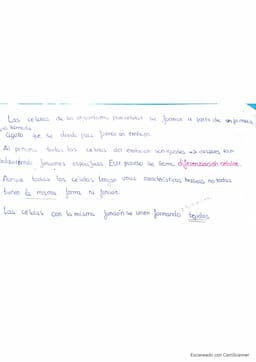 Las celulas de los organismos pluricelulares se forman a partir de un primera
celula llamada
cigoto que se divide para formar un embrion.
Al principio todas las celulas del embrion son iguales → despues van
adquiriendo funciones especificas. Este proceso se llama diferenciacion celular.
Aunque todas las celulas tengan unas caracteristicas basicas no todas
tienen la misma forma ni funcion.
Las celulas con la misma función se unen formando tejidos.
Escaneado con CamScanner